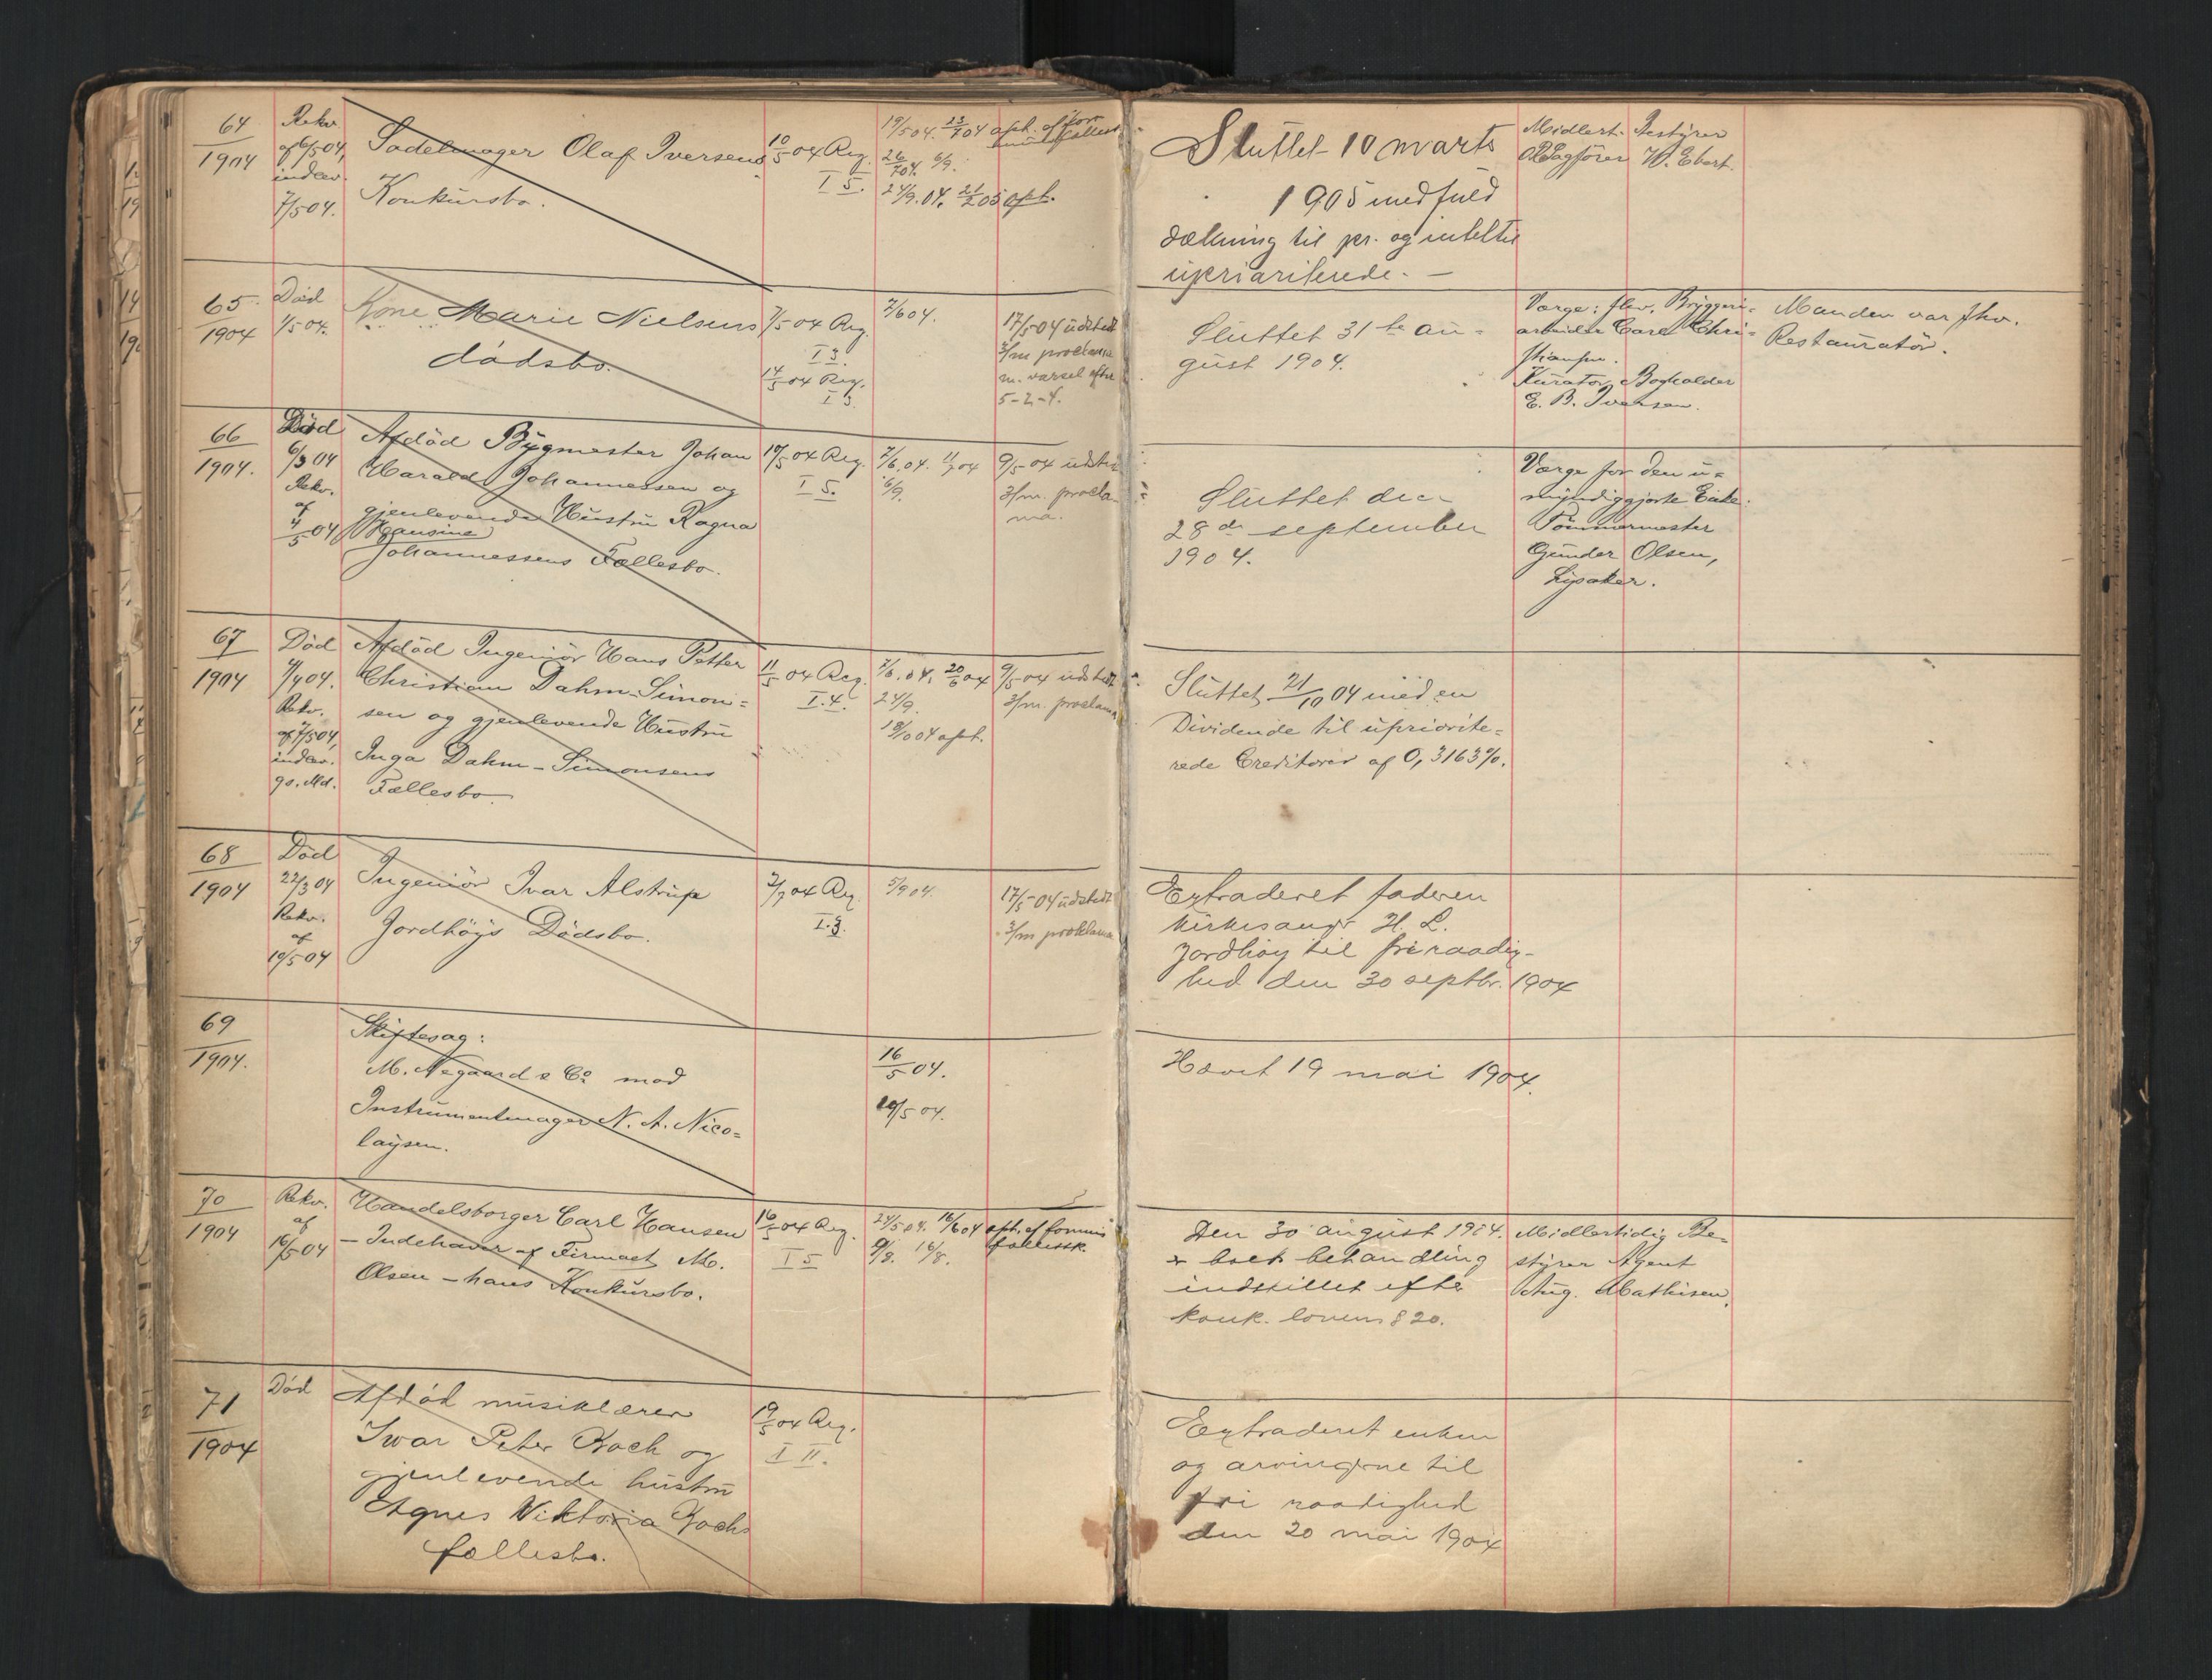 64
1904
Rekv.
af 6/5 04,
indlev.
7/5 04.
Sadelmager Olaf Iversens
Konkursbo.
10/5 04 Reg.
I 5.
19/5 04. 23/7 04 opt. af
26/7 04. 6/9.
24/9.04. 21/2 05 opt.
Sluttet 10 marts
1905 med fuld
dækning til pr. og intet til
upriariterede. —
Midlert. Bestyrer
O.R.Sagfører W. Ebert.
65
1904
Död
1/5 04.
Kone Marie Nielsens
dødsbo.
7/5 04 Reg.
I 3.
14/5 04 Reg.
I 3.
7/6 04.
17/5 04 udstedt
3/m proclama
m. varsel efter
5-2-4.
Sluttet 31te au=
gust 1904.
Værge: fhv. Bryggeri=
arbeider Carl Chri=
stiansen.
Kurator, Bogholder
E. B. Iversen.
Manden var fhv.
Restauratör.
66
1904.
Död
6/3 04
Rekv.
af
4/5 04
Afdöd Bygmester Johan
Harald Johannessen og
gjenlevende Hustru Ragna
Hansine
Johannessens Fællesbo.
10/5 04 Reg.
I 5.
7/6.04. 11/7 04
6/9.
9/5 04 udstedt
3/m. procla-
ma.
Sluttet den
28de september
1904.
Værge for den u=
myndiggjorte Enke:
Tömmermester
Gunder Olsen,
Lysaker.
67
1904
Död
4/4 04.
Rekv.
af 7/5 04,
indlev.
9s. Md.
Afdöd Ingeniör Hans Petter
Christian Dahm-Simon=
sen og gjenlevende Hustru
Inga Dahm-Simonsens
Fællesbo.
11/5 04 Reg.
I.4.
7/6.04. 20/6 04
24/9.
18/10 04 opt.
9/5 04 udstedt
3/m. proclama
Sluttet 21/10 04 med en
Dividende til upriorite=
rede Creditorer af 0,3163%.
68
1904
Död
22/3 04
Rekv.
af
10/5 04
Ingeniör Ivar Alstrup
Jordhöys Dödsbo.
2/7 04 Reg.
I.3.
5/9 04.
17/5 04 udstedt
3/m proklama
Extraderet faderen
kirkesangr H. L.
Jordhøy til fri raadig-
hed den 30 septbr. 1904
69
1904.
Skiftesag:
M. Nægaard & Co mod
Instrumentmager N. A. Nico=
laysen.
16/5 04.
19/5 04.
Hævet 19 mai 1904.
70
1904
Rekv.
af
16/5 04
Handelsborger Carl Hansen
— Indehaver af Firmaet M.
Olsen — hans Konkursbo.
16/5 04 Reg.
I 5
24/5 04. 16/6 04 opt. af
9/8. 16/8.
Den 30 august 1904.
er boets behandling
indstillet efter
konk. lovens § 20.
Midlertidig Be-
styrer Agent
Aug. Mathisen,
71
1904
Död
Afdöd musiklærer
Iwar Peter Koch og
gjenlevende hustru
Agnes Viktoria Kochs
fællesbo.
19/5 04 Reg.
I II.
Extraderet enken
og arvingerne til
fri raadighed
den 20 mai 1904